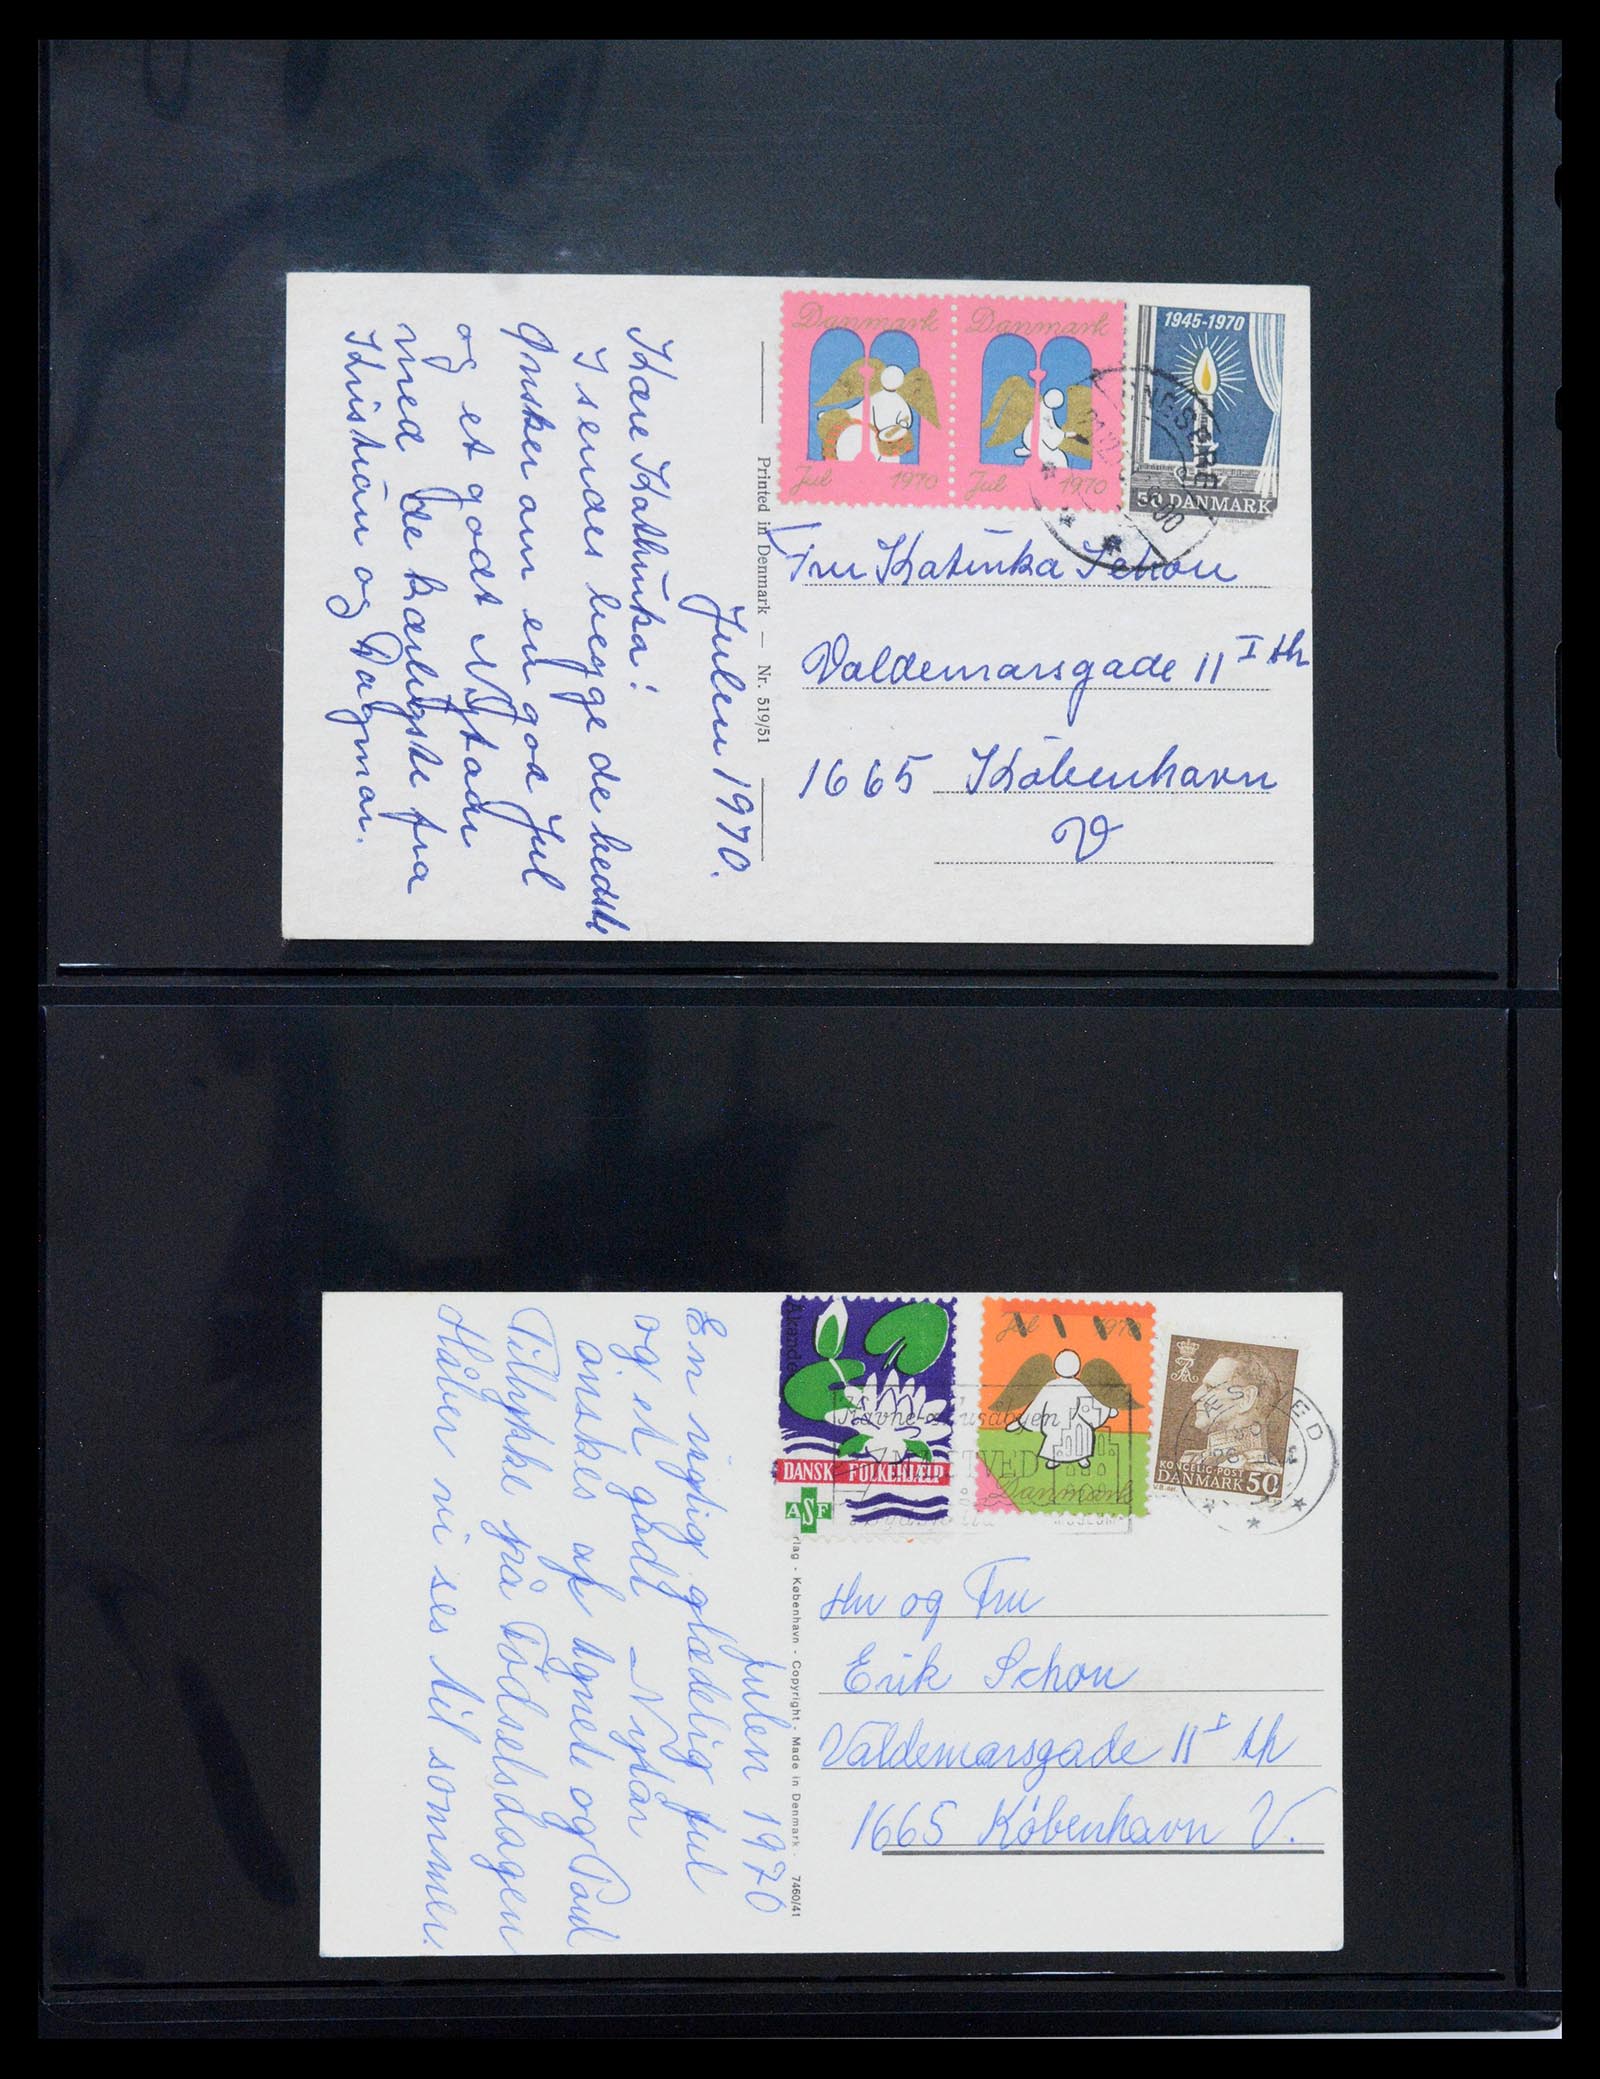 Danmark
Jul 1970
Danmark
Jul 1970
1945-1970
50 DANMARK
Printed in Denmark — Nr. 519/51
Julen 1970.
Kære Kathinka!
I sendes begge de bedste
Ønsker om en god Jul
og et godt Nytaar
med de kærligste fra
Kristian og Dagmar.
Fru Katinka Schou
Valdemarsgade 11 I th
1665 København
V
Åkande
DANSK FOLKEHJÆLP
ASF
Jul 1970
Danmark
KONGELIG POST
DANMARK 50
NÆSTVED
MUSEUM
København - Copyright - Made in Denmark - 7460/41
Julen 1970
En rigtig glædelig Jul
og et godt Nytår
ønskes af Agnete og Poul
Tillykke på Fødselsdagen
Håber vi ses til sommer.
Hr og Fru
Erik Schou
Valdemarsgade 11 I th
1665 København V.